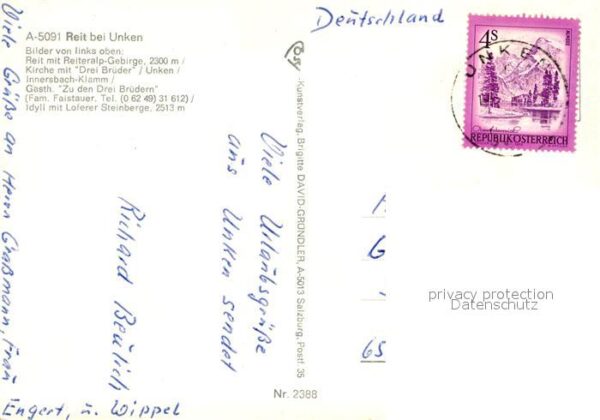 A-5091 Reit bei Unken
Bilder von links oben:
Reit mit Reiteralp-Gebirge, 2300 m /
Kirche mit "Drei Brüder" / Unken /
Innersbach-Klamm /
Gasth. "Zu den Drei Brüdern"
(Fam. Faistauer, Tel. (0 62 49) 31 612) /
Idyll mit Loferer Steinberge, 2513 m
Deutschland
4S
REPUBLIK ÖSTERREICH
UNKEN
Viele Urlaubsgrüße
aus Unken sendet
Richard
Viele Grüße an Herrn Graßmann, Frau
Engert, u. Wippel
Kunstverlag, Brigitte DAVID-GRÜNDLER, A-5013 Salzburg, Postf. 35
Nr. 2388
G
65
privacy protection
Datenschutz